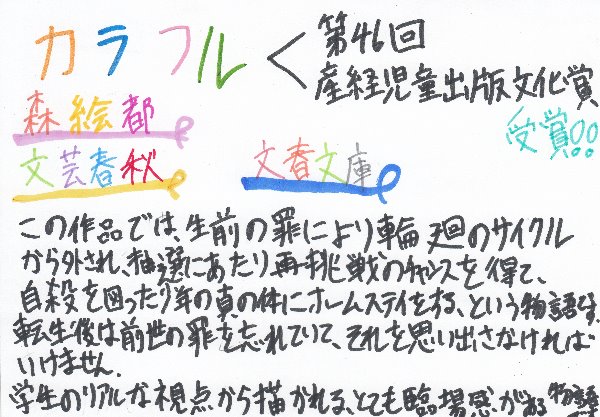 カラフル
第46回
産経児童出版文化賞
受賞!!
森絵都
文芸春秋
文春文庫
この作品では、生前の罪により輪廻のサイクル
から外され、抽選にあたり再挑戦のチャンスを得て、
自殺を図った少年の真の体にホームステイをする、という物語です。
転生後は前世の罪を忘れていて、それを思い出さなければ
いけません。
学生のリアルな視点から描かれる、とても臨場感がある物語